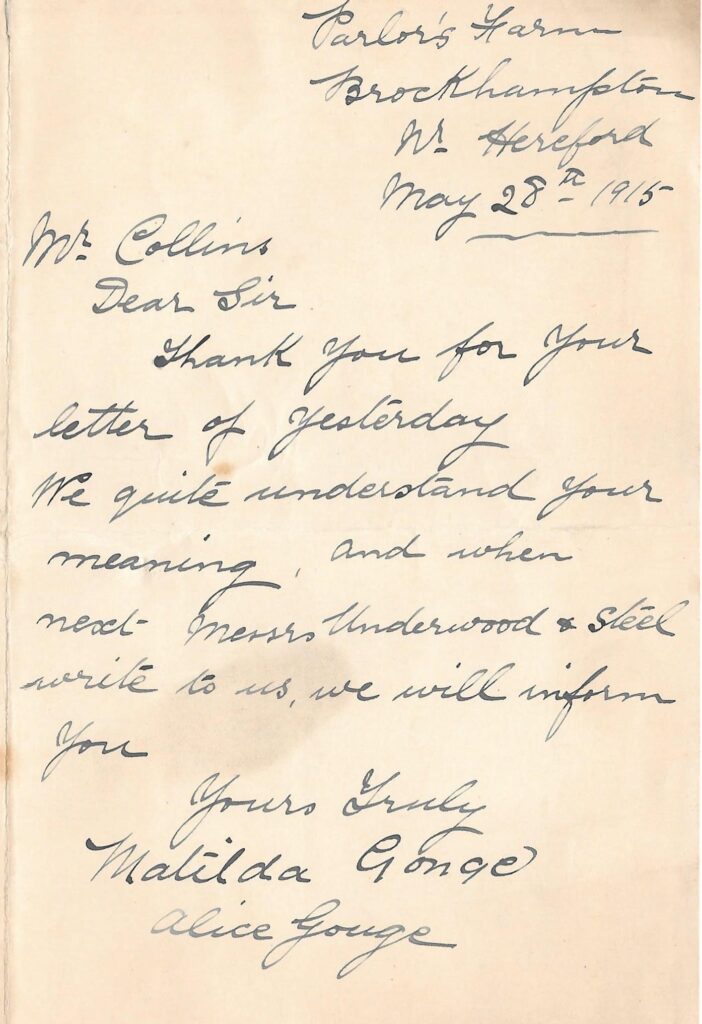 Parlor's Farm
Brockhampton
Nr. Hereford
May 28th 1915
Mr. Collins
Dear Sir
Thank You for Your
letter of Yesterday
We quite understand Your
meaning, and when
next Messrs Underwood & Steel
write to us, we will inform
You
Yours Truly
Matilda Gouge
Alice Gouge